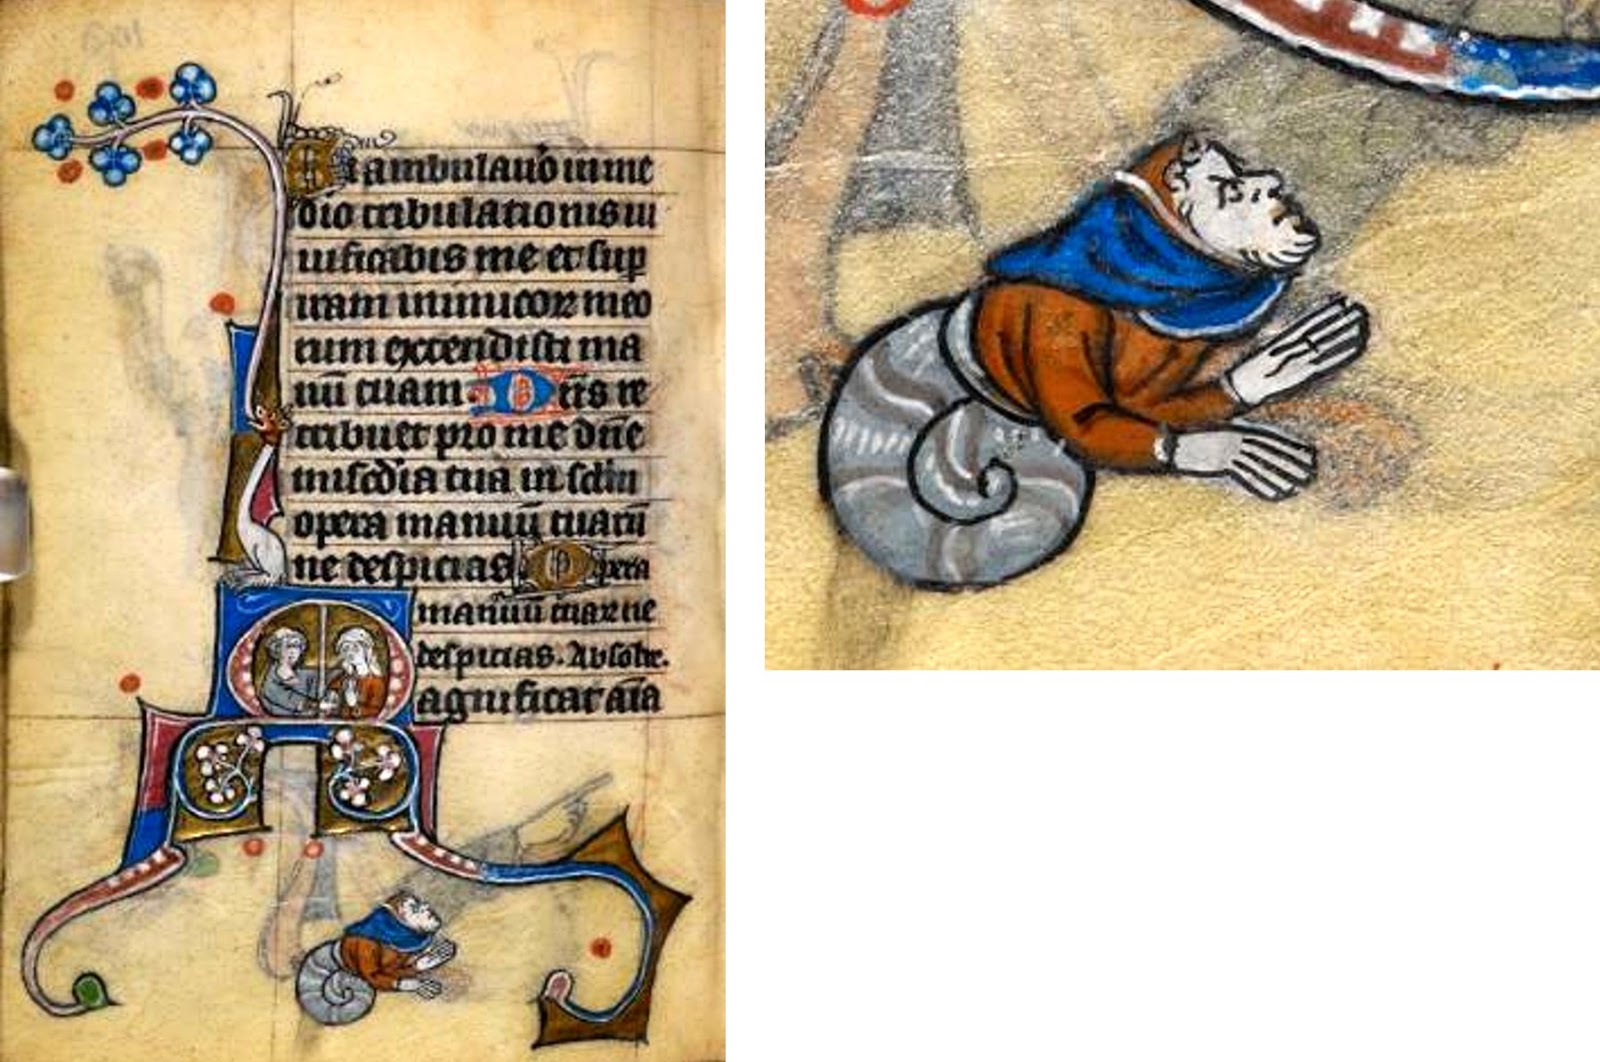 Si ambulau̅o in me
dio tribulationis ui
uificabis me et sup
iram inimicoꝝ meo
rum extendisti ma
nū tuam Dn̄s re
tribuet pro me dn̄e
mis̄c̄dia tua in sc̄lm
opera manuū tuarū
ne despicias Opera
manuū tuaꝝ ne
despicias. Absolue.
Magnificat aīa